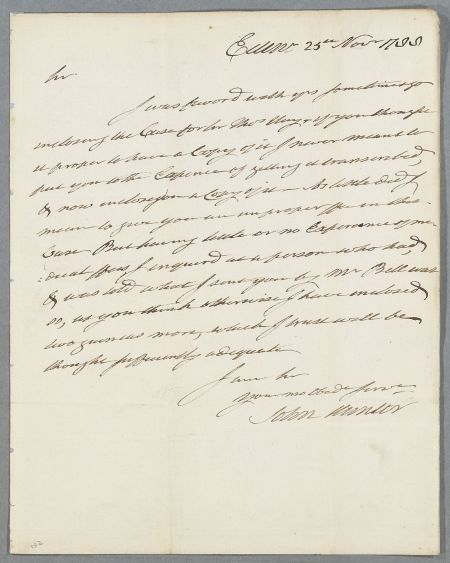 Edinr 25th Novr 1788
Sir
I was favord with yrs sometime ago
inclosing the Case for Sir Thos &, if you thought
it proper to have a Copy of it I never meant to
put you to the Expence of getting it transcribed,
& now inclose you a Copy of it – As little did I
mean to give you an improper fee in this
Case But having little or no Experience of me-
:dical ffees I enquired at a person who had,
& was told what I sent you by Mr Bell was
so, as you think otherwise I have inclosed
two guineas more, which I trust will be
thought sufficiently adequate
I am Sir
your most obedt Servt
John
132